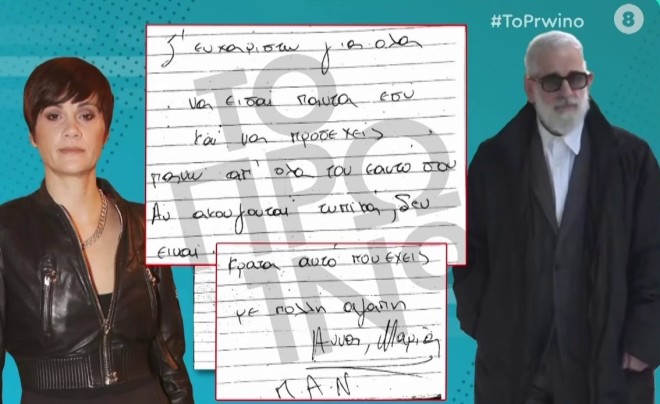 #ToPrwino
8
Σ' ευχαριστώ για ολα
να εισαι παντα εσυ
και να προσεχεις
πανω απ' ολα τον εαυτό σου
Αν ακουγονται τυπικά, δεν
ειναι.
Κρατα αυτό που εχεις
με πολλη αγαπη
Αννα, Μαρία
Π.Α.Ν.
ΤΟ
ΠΡΩ
ΙΝΟ